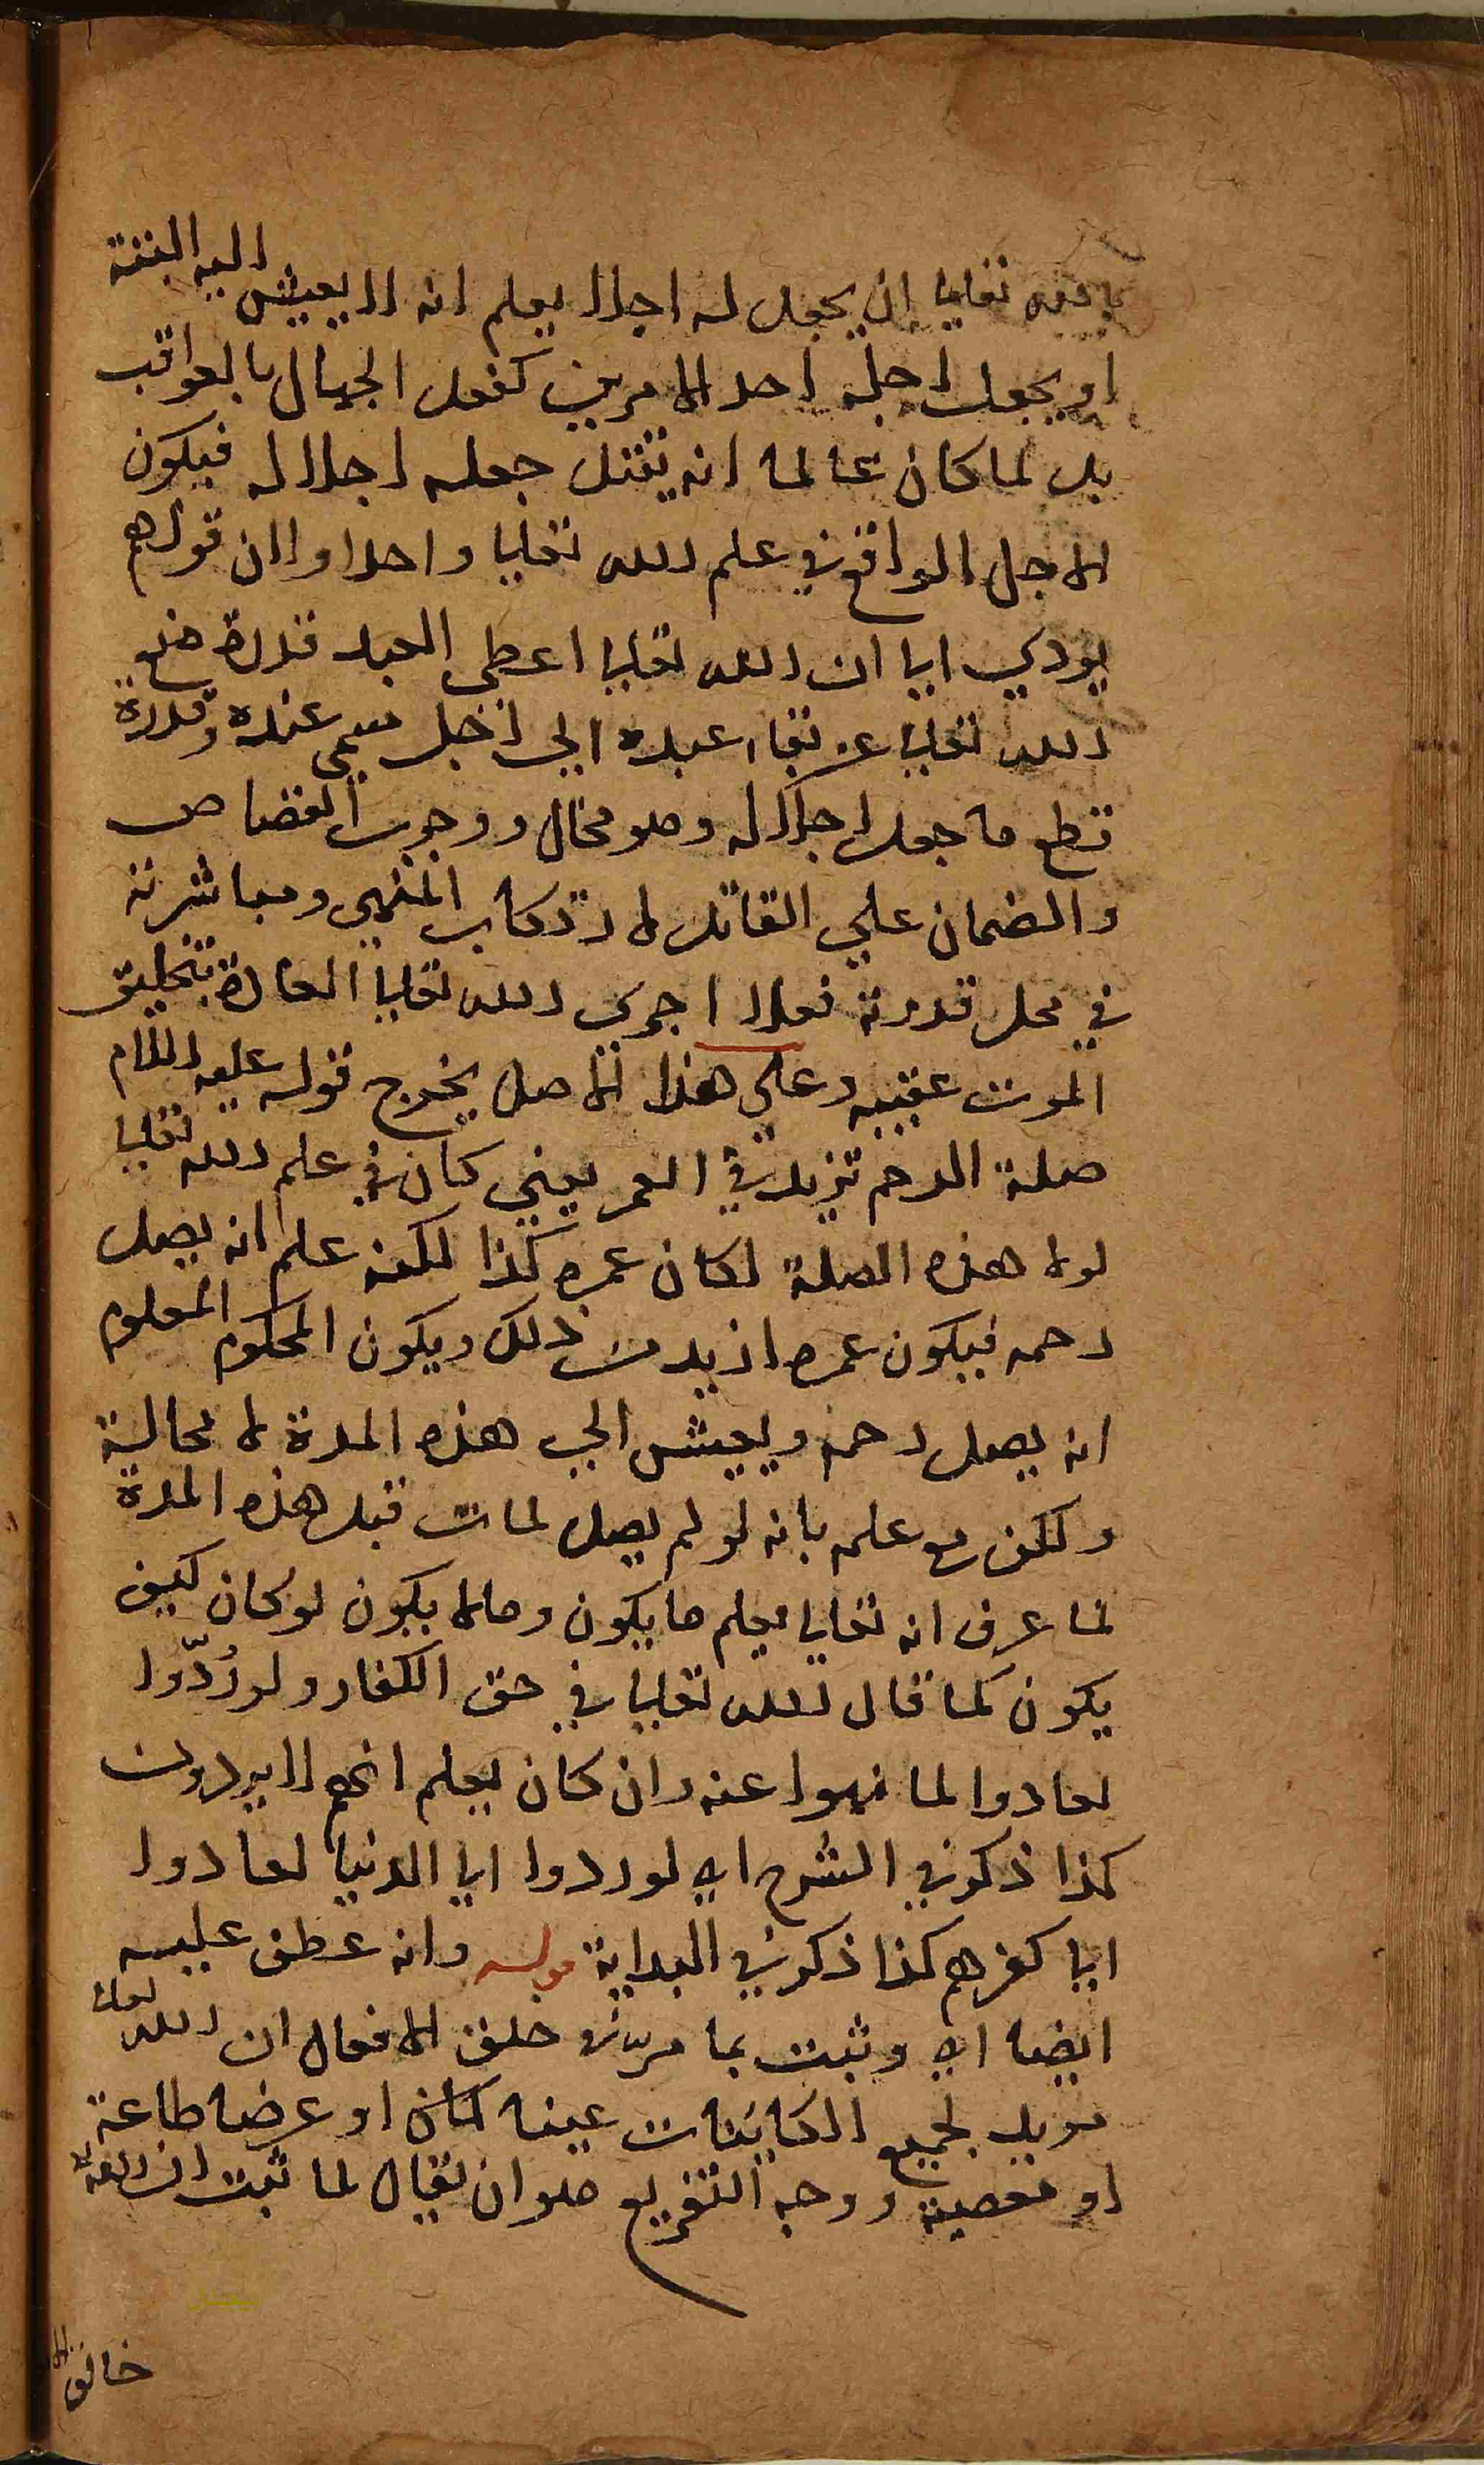 بالله تعالى ان يجعل له اجلا يعلم انه لا يعيش اليه البتة
او يجعل اجله احد الامرين كفعل الجهال بالعواقب
بل لما كان عالما انه يقتل جعله اجلا له فيكون
الاجل الواقع في علم الله تعالى واحدا ولان قولهم
يودي الى ان الله تعالى اعطى العبد قدرة منع
الله تعالى عن بقاء عبده الي اجل سمى عنده وقدرة
قطع ما جعل اجلا له وهو محال ووجوب القصاص
والضمان علي القاتل لارتكاب المنهى ومباشرته
في محل قدرته فعلا اجرى الله تعالى العادة بتخليق
الموت عقيبه وعلي هذا الاصل يخرج قوله عليه السلام
صلة الرحم تزيد في العمر يعني كان في علم الله تعالى
لولا هذه الصلة لكان عمره كذا لكنه علم انه يصل
رحمه فيكون عمره ازيد من ذلك ويكون المحكوم المعلوم
انه يصل رحمه ويعيش الي هذه المدة لا محالة
ولكن مع علمه بانه لو لم يصل لمات قبل هذه المدة
لما عرف انه تعالى يعلم ما يكون وما لا يكون لو كان كيف
يكون كما قال الله تعالى في حق الكفار ولو رُدّوا
لعادوا لما نهوا عنه وان كان يعلم انهم لا يردون
كذا ذكر في الشرح اي لو ردوا الى الدنيا لعادوا
الى كفرهم كذا ذكر في البداية قوله وانه عطف عليه
ايضا اي وثبت بما مر في خلق الافعال ان الله تعالى
مريد لجميع الكاينات عينا كان او عرضا طاعة
او معصية ووجه التفريع هو ان يقال لما ثبت ان الله تعالى
خالق